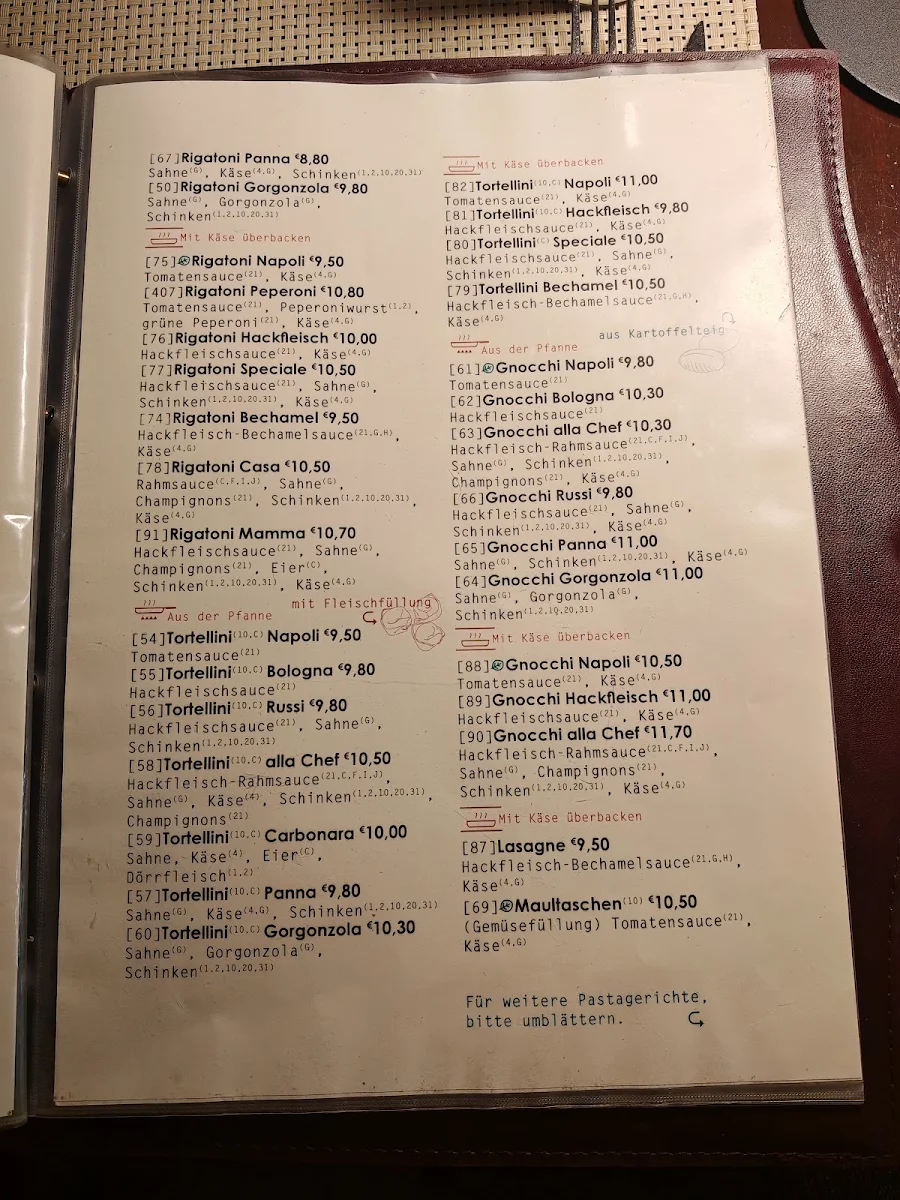 [67]Rigatoni Panna €8,80
Sahne(G), Käse(4,G), Schinken(1,2,10,20,31)
[50]Rigatoni Gorgonzola €9,80
Sahne(G), Gorgonzola(G),
Schinken(1,2,10,20,31)
Mit Käse überbacken
[75]Rigatoni Napoli €9,50
Tomatensauce(21), Käse(4,G)
[407]Rigatoni Peperoni €10,80
Tomatensauce(21), Peperoniwurst(1,2),
grüne Peperoni(21), Käse(4,G)
[76]Rigatoni Hackfleisch €10,00
Hackfleischsauce(21), Käse(4,G)
[77]Rigatoni Speciale €10,50
Hackfleischsauce(21), Sahne(G),
Schinken(1,2,10,20,31), Käse(4,G)
[74]Rigatoni Bechamel €9,50
Hackfleisch-Bechamelsauce(21,G,H),
Käse(4,G)
[78]Rigatoni Casa €10,50
Rahmsauce(C,F,I,J), Sahne(G),
Champignons(21), Schinken(1,2,10,20,31),
Käse(4,G)
[91]Rigatoni Mamma €10,70
Hackfleischsauce(21), Sahne(G),
Champignons(21), Eier(C),
Schinken(1,2,10,20,31), Käse(4,G)
mit Fleischfüllung
Aus der Pfanne
[54]Tortellini(10,C) Napoli €9,50
Tomatensauce(21)
[55]Tortellini(10,C) Bologna €9,80
Hackfleischsauce(21)
[56]Tortellini(10,C) Russi €9,80
Hackfleischsauce(21), Sahne(G),
Schinken(1,2,10,20,31)
[58]Tortellini(10,C) alla Chef €10,50
Hackfleisch-Rahmsauce(21,C,F,I,J),
Sahne(G), Käse(4), Schinken(1,2,10,20,31),
Champignons(21)
[59]Tortellini(10,C) Carbonara €10,00
Sahne, Käse(4), Eier(C),
Dörrfleisch(1,2)
[57]Tortellini(10,C) Panna €9,80
Sahne(G), Käse(4,G), Schinken(1,2,10,20,31)
[60]Tortellini(10,C) Gorgonzola €10,30
Sahne(G), Gorgonzola(G),
Schinken(1,2,10,20,31)
Mit Käse überbacken
[82]Tortellini(10,C) Napoli €11,00
Tomatensauce(21), Käse(4,G)
[81]Tortellini(10,C) Hackfleisch €9,80
Hackfleischsauce(21), Käse(4,G)
[80]Tortellini(C) Speciale €10,50
Hackfleischsauce(21), Sahne(G),
Schinken(1,2,10,20,31), Käse(4,G)
[79]Tortellini Bechamel €10,50
Hackfleisch-Bechamelsauce(21,G,H),
Käse(4,G)
aus Kartoffelteig
Aus der Pfanne
[61]Gnocchi Napoli €9,80
Tomatensauce(21)
[62]Gnocchi Bologna €10,30
Hackfleischsauce(21)
[63]Gnocchi alla Chef €10,30
Hackfleisch-Rahmsauce(21,C,F,I,J),
Sahne(G), Schinken(1,2,10,20,31),
Champignons(21), Käse(4,G)
[66]Gnocchi Russi €9,80
Hackfleischsauce(21), Sahne(G),
Schinken(1,2,10,20,31), Käse(4,G)
[65]Gnocchi Panna €11,00
Sahne(G), Schinken(1,2,10,20,31), Käse(4,G)
[64]Gnocchi Gorgonzola €11,00
Sahne(G), Gorgonzola(G),
Schinken(1,2,10,20,31)
Mit Käse überbacken
[88]Gnocchi Napoli €10,50
Tomatensauce(21), Käse(4,G)
[89]Gnocchi Hackfleisch €11,00
Hackfleischsauce(21), Käse(4,G)
[90]Gnocchi alla Chef €11,70
Hackfleisch-Rahmsauce(21,C,F,I,J),
Sahne(G), Champignons(21),
Schinken(1,2,10,20,31), Käse(4,G)
Mit Käse überbacken
[87]Lasagne €9,50
Hackfleisch-Bechamelsauce(21,G,H),
Käse(4,G)
[69]Maultaschen(10) €10,50
(Gemüsefüllung) Tomatensauce(21),
Käse(4,G)
Für weitere Pastagerichte,
bitte umblättern.